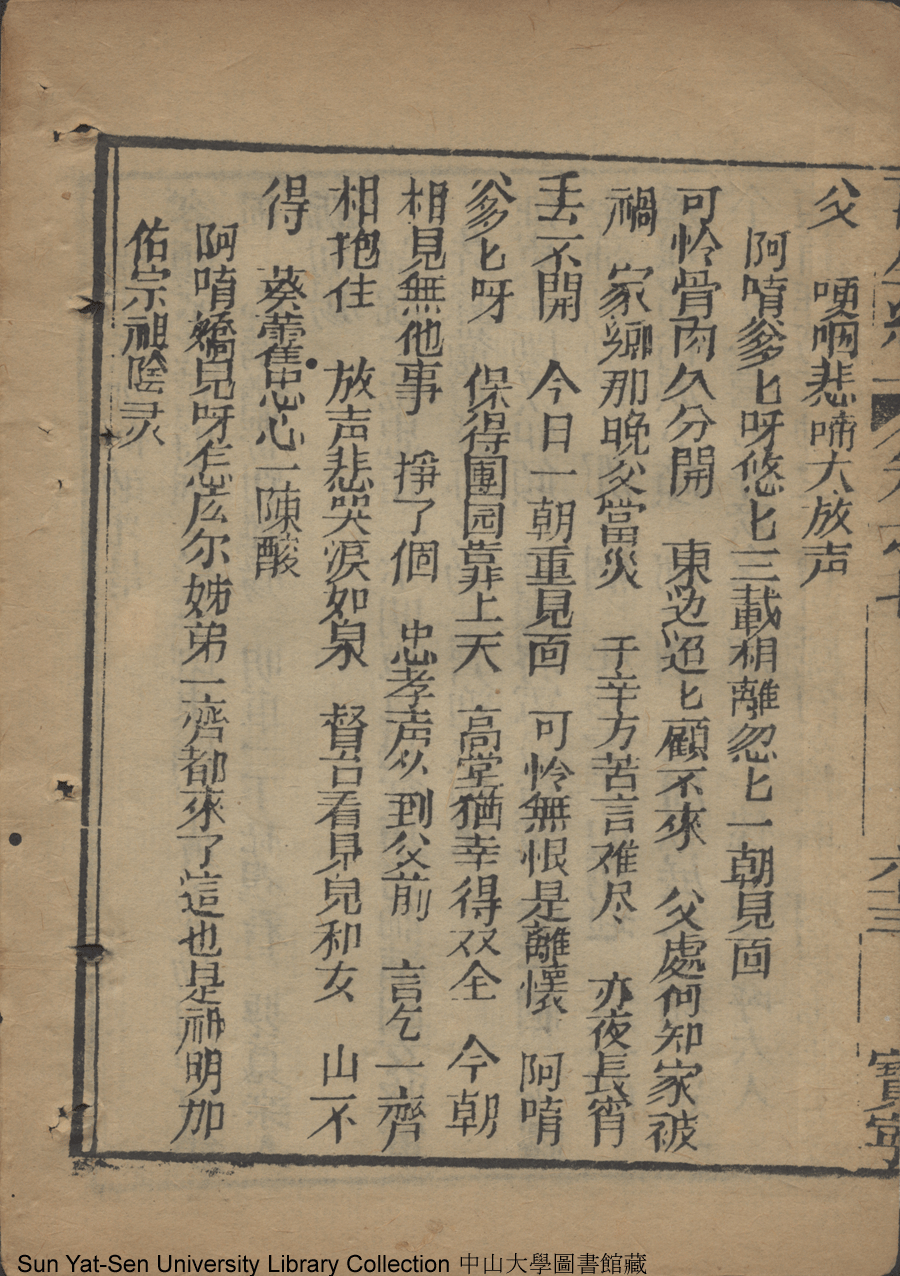 父　哽咽悲啼大放声
阿唷爹匕呀悠匕三載相離忽匕一朝見面
可怜骨肉久分開　東边迢匕顧不來　父處何知家被
禍　家鄉那晚父當災　千辛方苦言难尽　亦夜長宵
丟不開　今日一朝重見面　可怜無恨是離懷　阿唷
爹匕呀　保得團园靠上天　高堂猶幸得双全　今朝
相見無他事　掙了個　忠孝声从到父前　言乞一齊
相抱住　放声悲哭淚如泉　督台看見兒和女　山不
得　葵藿忠心一陳酸
阿唷嬌兒呀怎庅尔姊弟一齊都來了這也是神明加
佑宗祖陰灵
六三
Sun Yat-Sen University Library Collection 中山大學圖書館藏